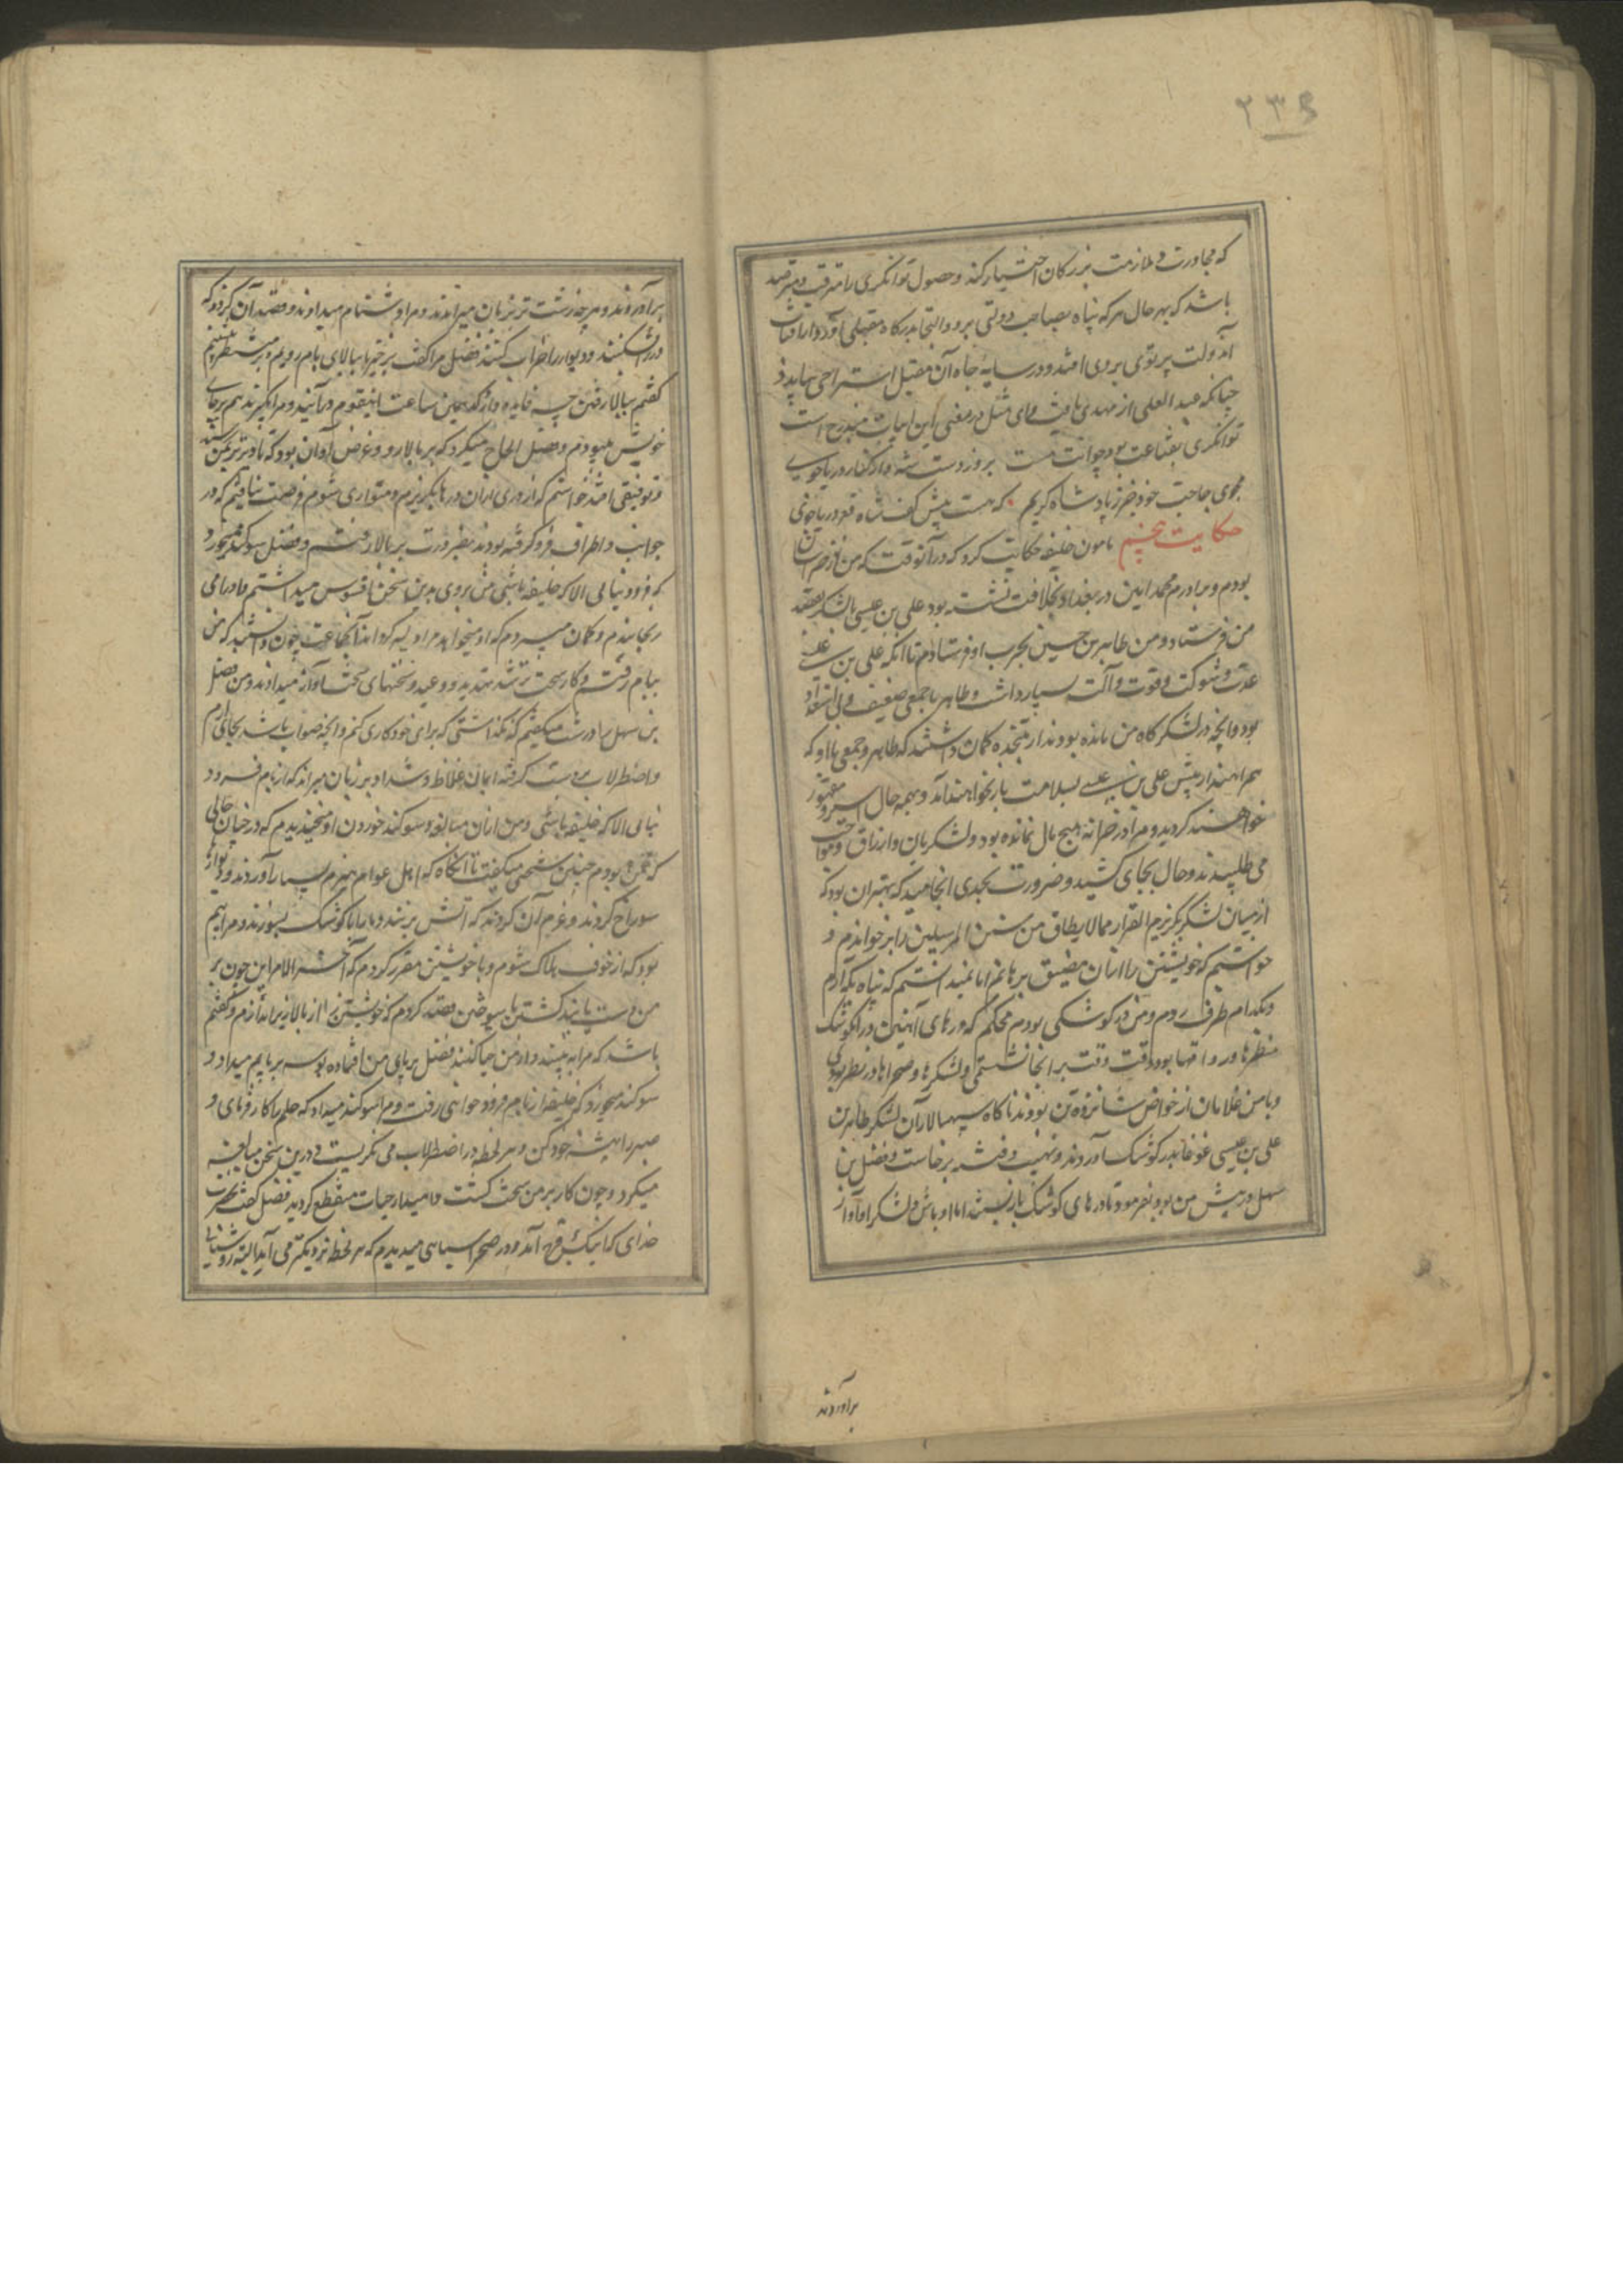 ۲۳۶
که مجاورت و ملازمت بزرکان اختیار کند و حصول توانکری را مترقب و مترصد
باشد که بهر حال هر که پناه بصاحب دولتی برد و التجا بدرکاه مقبلی آورد از آفتاب
آن دولت پرتوی بروی افتد و در سایه جاه آن مقبل استراحتی بیابد و
چنانکه عبد العلی از مهدی یافت و این مثل در معنی این ابیات مندرج است
توانکری بقناعت بود چو آنت هست بروز دست بشو از کنار دریا جوی
مجوی حاجت خود جز ز پادشاه کریم که هست پیش کف شاه قعر دریا جوی
حکایت پنجم مامون خلیفه حکایت کرد که در آنوقت که من در خراسان
بودم و برادرم محمد امین در بغداد بخلافت نشسته بود علی بن عیسی با لشکر بقصد
من فرستاد و من طاهر بن حسین بحرب او فرستادم تا آنکه علی بن عیسی
عدت و شوکت و قوت و آلت بسیار داشت و طاهر با جمعی ضعیف و بی استعداد
بود و آنچه در لشکرکاه من مانده بودند از تجنده کمان داشتند که طاهر و جمعی با او که
همراهند از پیش علی بن عیسی بسلامت باز نخواهند آمد و بهمه حال اسیر و مقهور
خواهند کردید و مرا در خزانه هیچ مال نمانده بود و لشکریان و ارزاق و مواجب
می طلبیدند و حال بجای کشید و ضرورت بحدی انجامید که بهتر آن بود که
از میان لشکر بکریزیم الفرار مما لا یطاق من سنن المرسلین را بر خواندم و
خواستیم که خویشتن را از آن مضیق برهانم اما نمیدانستم که پناه بکه آرم
و بکدام طرف روم و من در کوشکی بودم محکم که درهای آهنین در آن کوشک
منظرها و رواقها بود و وقت وقت بر آنجا نشستمی و لشکرها و صحراها در نظر بودی
و با من غلامان از خواص شانزده تن بودند ناکاه سپهسالاران لشکر طاهر بن
علی بن عیسی غوغا بدر کوشک آوردند و نهیب و فتنه برخاست و فضل بن
سهل در پیش من بود بفرمود تا درهای کوشک باز بستند اما اوباش و لشکر او آواز
برآوردند
برآوردند و هر چه زشت تر بزبان میراندند و مرا دشنام میدادند و قصد آن کردند که
در بشکنند و دیوار را خراب کنند فضل مرا کفت برخیز تا ببالای بام رویم و بر منظر نشینیم
کفتم ببالا رفتن چه فایده دارد که همین ساعت این قوم درآیند و مرا بکیرند هم بر جای
خویش میبودم و فضل الحاح میکرد که بر بالا رو و غرض او آن بود که تا دیرتر بمن رسند
و توفیقی افتد خواستم که از وری از آن درها بکریزم و متواری شوم فرصت نیافتم که در
جوانب و اطراف فرو کرفته بودند بضرورت بر بالا رفتم و فضل سوکند میخورد
که فرود نیایی الا که خلیفه باشی من بروی بدین سخن افسوس میداشتم و او را می
رنجانیدم و کمان میبردم که او میخواهد مرا دلیر کرداند آن جماعت چون دانستند که من
ببام رفتم و کار سخت تر شد تهدید و وعید و سخنهای سخت آواز میدادند و من فضل
بن سهل را درشت میکفتم که نکذاشتی که برای خود کاری کنم و آنچه صواب باشد بجای آرم
و اضطرلاب بدست کرفته ایمان غلاظ و شداد بر زبان میراند که از بام فرود
نیایی الا که خلیفه باشی و من از آن مبالغه و سوکند خوردن او میخندیدم که در چنان حالی
که من بودم چنین سخن میکفت تا آنکاه که اهل عوام هیزم بسیار آوردند و دیوارها
سوراخ کردند و عزم آن کردند که آتش بزنند و ما را با کوشک بسوزند و مرا بیم
بود که از خوف هلاک شوم و با خویشتن مقرر کردم که آخر الامر این چون بر
من دست یابند کشتن یا سوختن قصد کردم که خویشتن را از بالا بزیر اندازم و کفتم
باشد که مرا به بینند و از من حیا کنند فضل بر پای من افتاده بوسه بر پایم میداد و
سوکند میخورد که خلیفه از بام فرود خواهی رفت و مرا سوکند میداد که حلم را کار فرمای و
صبر را پیشه خود کن و هر لحظه در اضطرلاب می نکریست و درین سخن مبالغه
میکرد و چون کار بر من سخت کشت و امید از حیات منقطع کردید فضل کفت بحرب
خدای که اینک فرج آمد و در صحرا سیاهی میدیدم که هر لحظه نزدیکتر می آید البته روشنایی